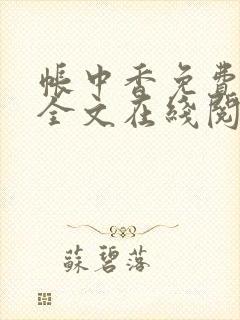 帳中香免費
全文在綫閱
蘇碧落